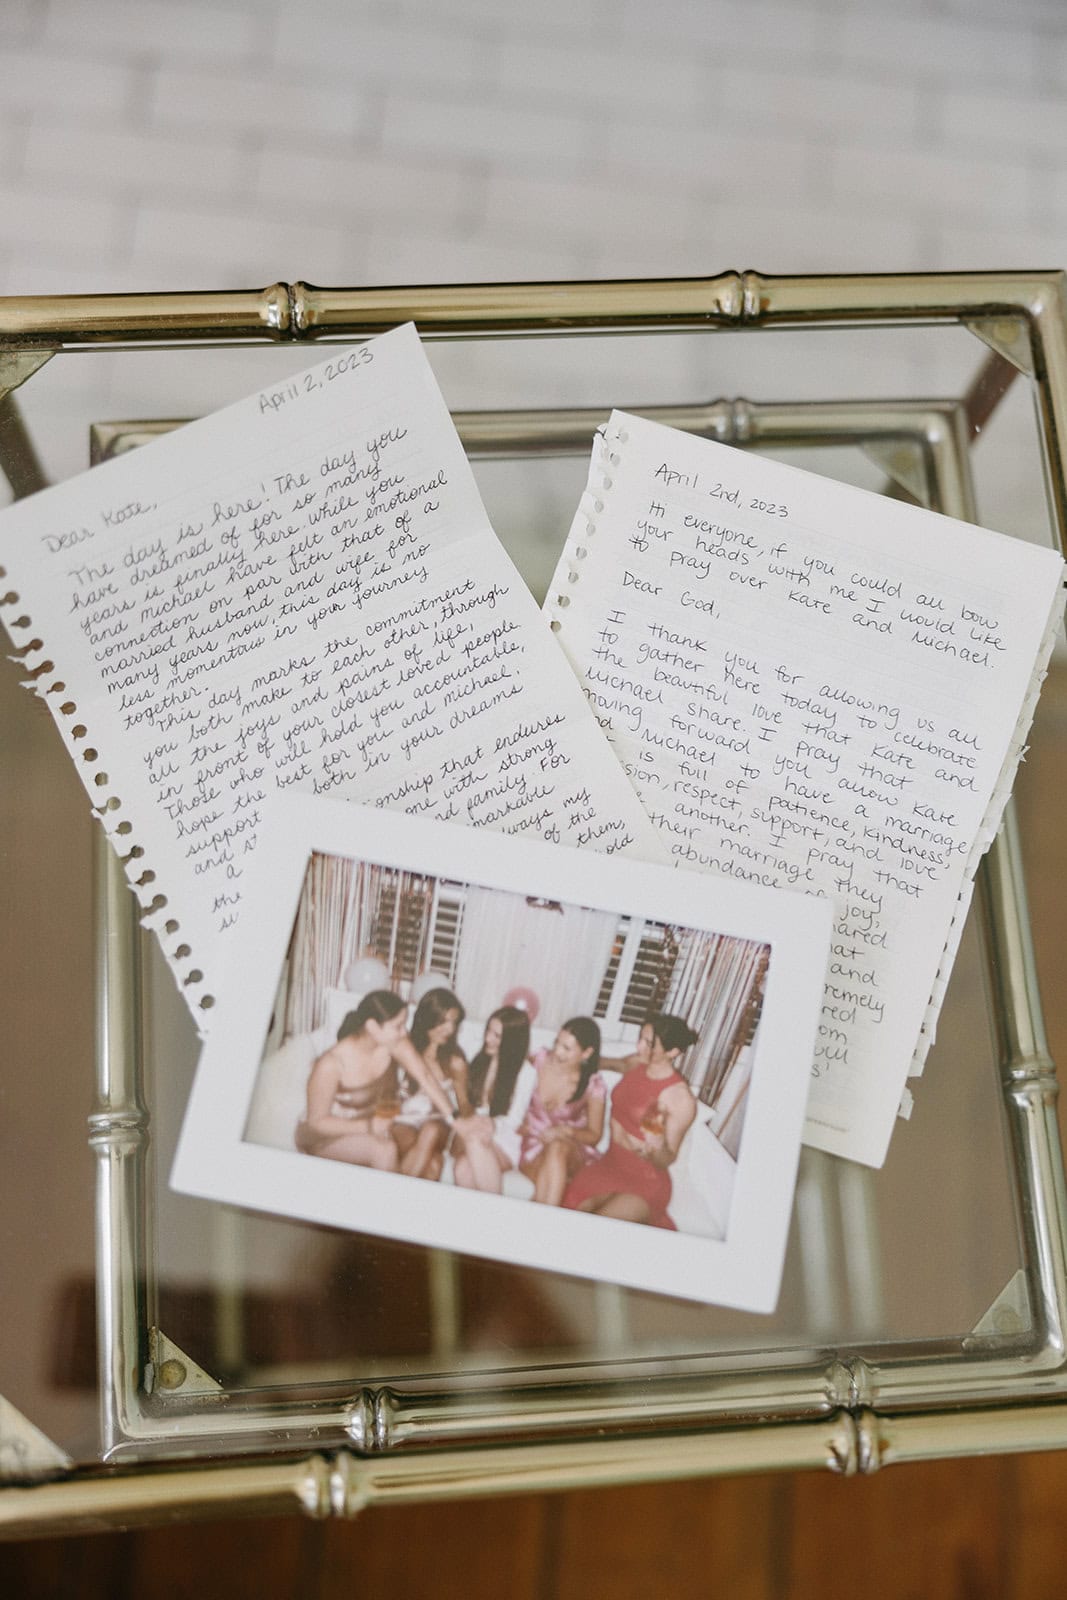 April 2, 2023
Dear Kate,
The day is here! The day you
have dreamed of for so many
years is finally here. While you
and Michael have felt an emotional
connection on par with that of a
married husband and wife for
many years now, this day is no
less momentous in your journey
together.
This day marks the commitment
you both make to each other, through
all the joys and pains of life,
in front of your closest loved people.
Those who will hold you accountable,
hope the best for you and Michael,
support both in your dreams
and
a
the
onship that endures
one with strong
nd family. For
markable
ways my
of the
them,
old
April 2nd, 2023
Hi everyone, if you could all bow
your heads with me I would like
to pray over Kate and Michael.
Dear God,
I thank you for allowing us all
to gather here today to celebrate
the beautiful love that Kate and
Michael share. I pray that
moving forward you allow Kate
Michael to have a marriage
is full of patience, kindness,
sion, respect, support, and love
another. I pray that
their marriage they
abundance of joy,
ared
hat
and
remely
red
om
will